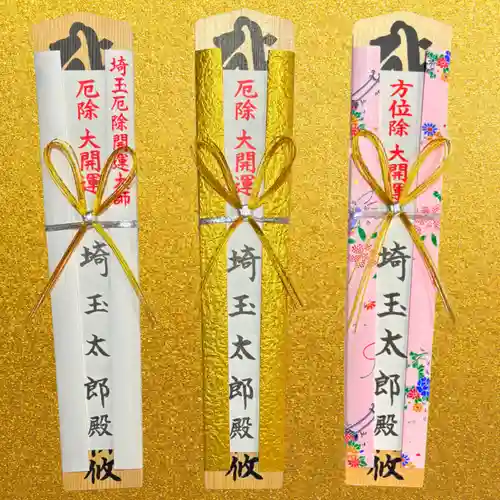 埼玉厄除開運大師
厄除 大開運
埼玉太郎殿
攸
厄除 大開運
埼玉太郎殿
攸
方位除 大開運
埼玉太郎殿
攸